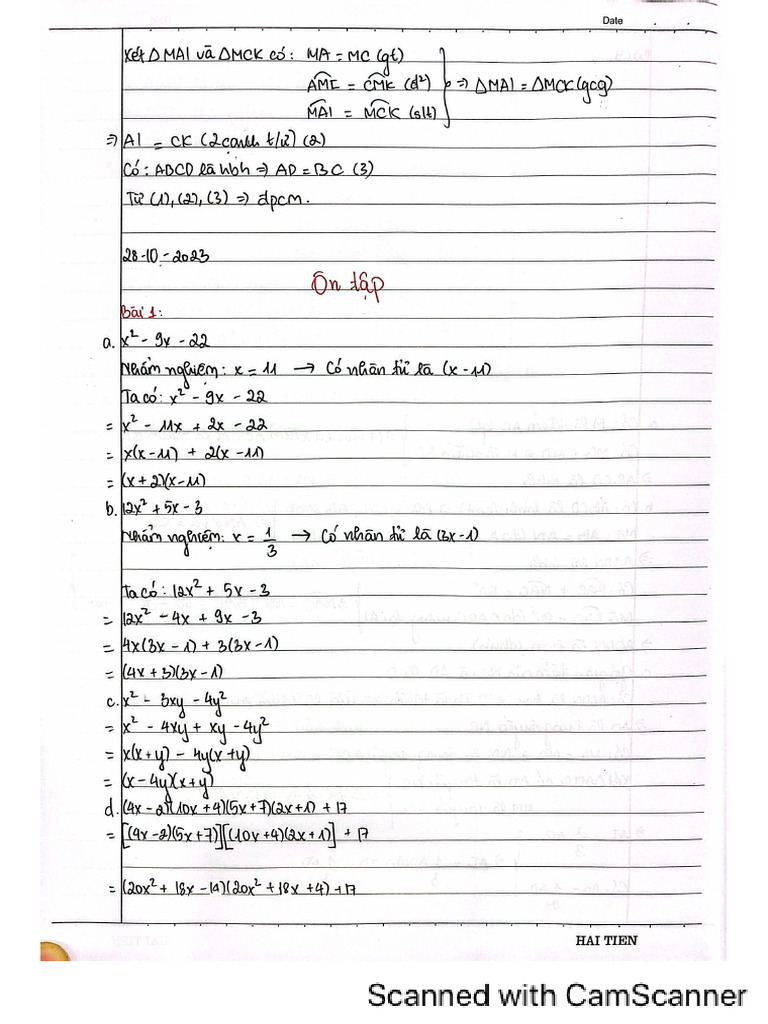 Date . .
Xét ΔMAI và ΔMCK có: MA = MC (gt)
AMI = CMK (d²) ⇒ ΔMAI = ΔMCK (gcg)
MAI = MCK (slt)
⇒ AI = CK (2 cạnh t/ư) (2)
Có: ABCD là hbh ⇒ AD = BC (3)
Từ (1), (2), (3) ⇒ dpcm.
28-10-2023
Ôn tập
Bài 1:
a. x² - 9x - 22
Nhẩm nghiệm: x = 11 → Có nhân tử là (x - 11)
Ta có: x² - 9x - 22
= x² - 11x + 2x - 22
= x(x - 11) + 2(x - 11)
= (x + 2)(x - 11)
b. 12x² + 5x - 3
Nhẩm nghiệm: x = 1/3 → Có nhân tử là (3x - 1)
Ta có: 12x² + 5x - 3
= 12x² - 4x + 9x - 3
= 4x(3x - 1) + 3(3x - 1)
= (4x + 3)(3x - 1)
c. x² - 3xy - 4y²
= x² - 4xy + xy - 4y²
= x(x + y) - 4y(x + y)
= (x - 4y)(x + y)
d. (4x - 2)(10x + 4)(5x + 7)(2x + 1) + 17
= [(4x - 2)(5x + 7)][(10x + 4)(2x + 1)] + 17
= (20x² + 18x - 14)(20x² + 18x + 4) + 17
HAI TIEN
Scanned with CamScanner